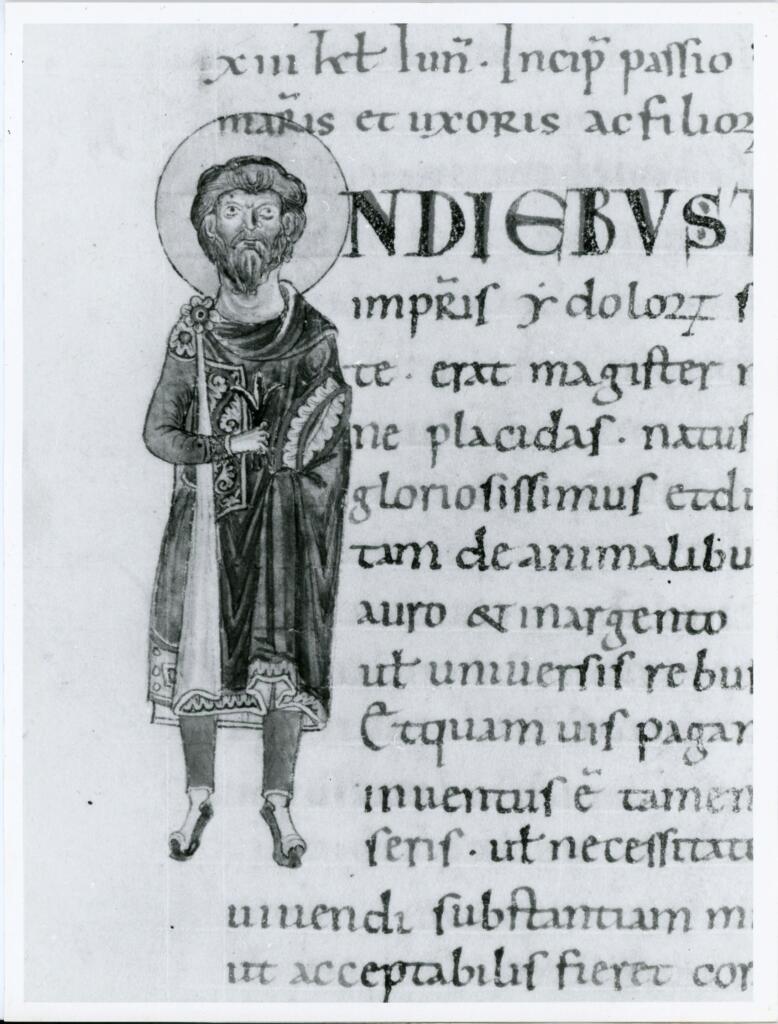 xiii kƚ iun̄. Incip̄ passio
mar̄is et uxoris ac filioꝝ
NDIEBVS T
impr̄is ꝩ doloꝝ s
te. erat magister
ne placidas. natus
gloriosissimus et di
tam de animalibu
auro & inargento
uƚ uniuersis rebus
Etquam uis pagan
inuentus ē tamen
seris. uƚ necessitat
uiuendi substantiam m
ut acceptabilis fieret cor